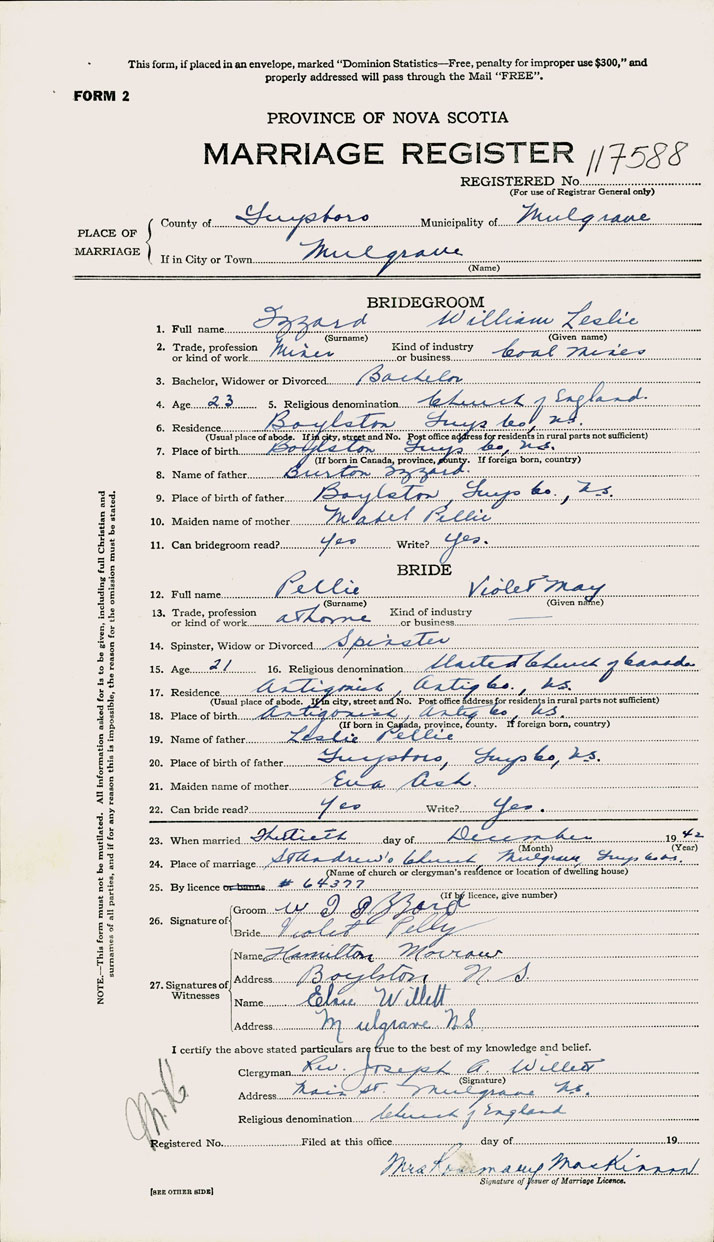 This form, if placed in an envelope, marked "Dominion Statistics—Free, penalty for improper use $300," and
properly addressed will pass through the Mail "FREE".
FORM 2
PROVINCE OF NOVA SCOTIA
MARRIAGE REGISTER 117588
REGISTERED No.
(For use of Registrar General only)
PLACE OF MARRIAGE
County of Guysboro Municipality of Mulgrave
If in City or Town Mulgrave
(Name)
BRIDEGROOM
1. Full name Izzard William Leslie
(Surname) (Given name)
2. Trade, profession or kind of work Miner Kind of industry or business Coal Mines
3. Bachelor, Widower or Divorced Bachelor
4. Age 23 5. Religious denomination Church of England.
6. Residence Boylston Guys Co, N.S.
(Usual place of abode. If in city, street and No. Post office address for residents in rural parts not sufficient)
7. Place of birth Boylston Guys Co, N.S.
(If born in Canada, province, county. If foreign born, country)
8. Name of father Burton Izzard.
9. Place of birth of father Boylston, Guys Co., N.S.
10. Maiden name of mother Mabel Pellie
11. Can bridegroom read? Yes Write? Yes.
BRIDE
12. Full name Pellie Violet May
(Surname) (Given name)
13. Trade, profession or kind of work at home Kind of industry or business —
14. Spinster, Widow or Divorced Spinster
15. Age 21 16. Religious denomination United Church of Canada
17. Residence Antigonish, Antig Co., N.S.
(Usual place of abode. If in city, street and No. Post office address for residents in rural parts not sufficient)
18. Place of birth Antigonish, Antg Co, N.S.
(If born in Canada, province, county. If foreign born, country)
19. Name of father Leslie Pellie
20. Place of birth of father Guysboro, Guys Co, N.S.
21. Maiden name of mother Eva Ash
22. Can bride read? Yes Write? Yes.
23. When married Thirtieth day of December 1942
(Month) (Year)
24. Place of marriage St Andrew's Church, Mulgrave, Guys Co N.S.
(Name of church or clergyman's residence or location of dwelling house)
25. By licence or banns # 64377
(If by licence, give number)
26. Signature of
Groom W I Izzard
Bride Violet Pelly
27. Signatures of Witnesses
Name Hamilton Morrow
Address Boylston N S.
Name Elsie Willett
Address Mulgrave NS
I certify the above stated particulars are true to the best of my knowledge and belief.
Clergyman Rev. Joseph A. Willett
(Signature)
Address Main St. Mulgrave N.S.
Religious denomination Church of England
Registered No. Filed at this office day of 19
Mrs Rosemary MacKinnon
Signature of Issuer of Marriage Licence.
[SEE OTHER SIDE]
NOTE.—This form must not be mutilated. All information asked for is to be given, including full Christian and
surnames of all parties, and if for any reason this is impossible, the reason for the omission must be stated.